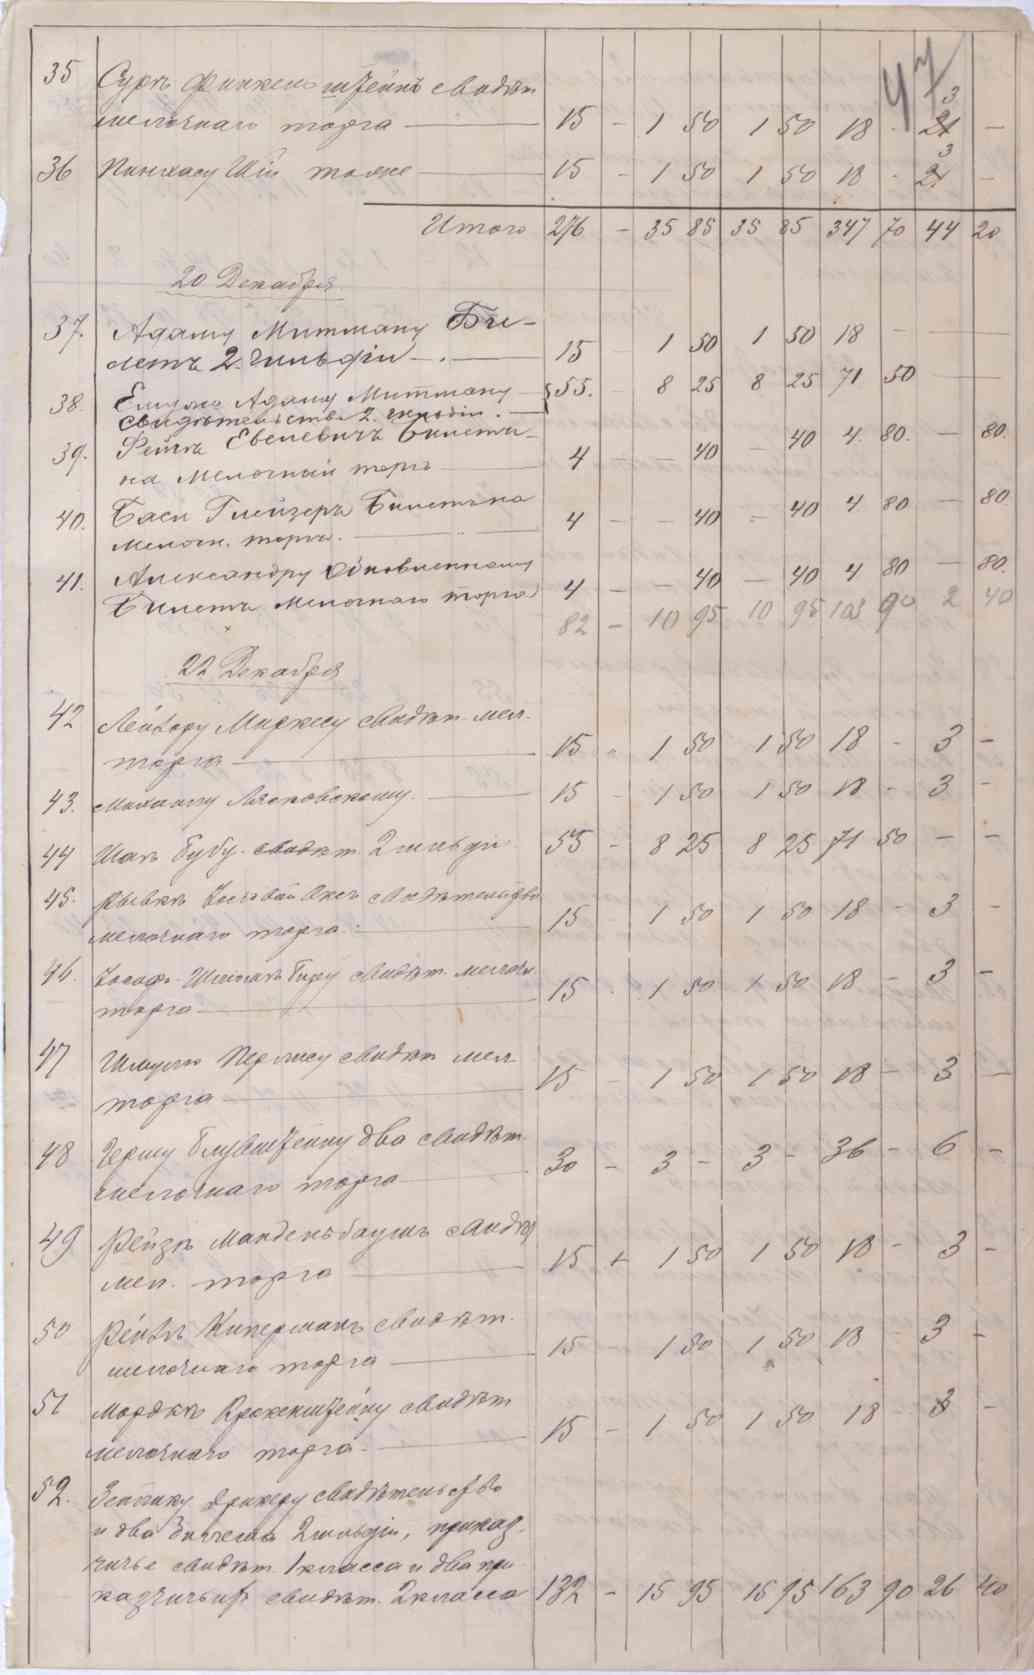 47
35 Суръ Финкельштейнъ свидѣт
мелочнаго торга — 15 – 1 50 1 50 18 - 3 –
36 Пинхасу Шіи тоже — 15 – 1 50 1 50 18 - 3 –
Итого 276 – 35 85 35 85 347 70 44 20
20 Декабря
37. Адаму Митману Би-
летъ 2. гильдіи — 15 1 50 1 50 18 –
38. Ему же Адаму Митману
свидѣтельство 2. гильдіи. — 55. – 8 25 8 25 71 50
39. Фейгѣ Евелевичъ билетъ
на мелочный торгъ — 4 – – 40 – 40 4 80. – 80.
40. Баси Глейзеръ билетъ на
мелочн. торгъ. — 4 – – 40 – 40 4 80 – 80.
41. Александру
билетъ мелочнаго торга 4 – – 40 – 40 4 80 – 80.
82 – 10 95 10 95 103 90 2 40
22 Декабря
42 Лейзору Маркусу свидѣт. мел.
торга — 15 - 1 50 1 50 18 - 3 –
43. Михаилу Лясковскому. — 15 - 1 50 1 50 18 - 3 –
44 свидѣт. 2 гильдіи 55 – 8 25 8 25 71 50 – –
45. Рывкѣ свидѣтельство
мелочнаго торга. — 15 1 50 1 50 18 – 3 –
46. свидѣт. мелочн.
торга — 15 . 1 50 1 50 18 – 3 –
47 Шмулю Перлису свидѣт мел
торга — 15 – 1 50 1 50 18 – 3 –
48 Гершу два свидѣт.
мелочнаго торга — 30 – 3 – 3 – 36 – 6 –
49 Рейзѣ Мандельбаумъ свидѣт
мел. торга — 15 + 1 50 1 50 18 – 3 –
50 Киперманъ свидѣт.
мелочнаго торга — 15 – 1 50 1 50 18 3 –
51 Мордкѣ свидѣт
мелочнаго торга. — 15 – 1 50 1 50 18 – 3 –
52. свидѣтельство
и два билета 2 гильдіи, приказ-
чичье свидѣт. 1 класса и два при
казчичьихъ свидѣт. 2 класса 132 – 15 95 15 95 163 90 26 40